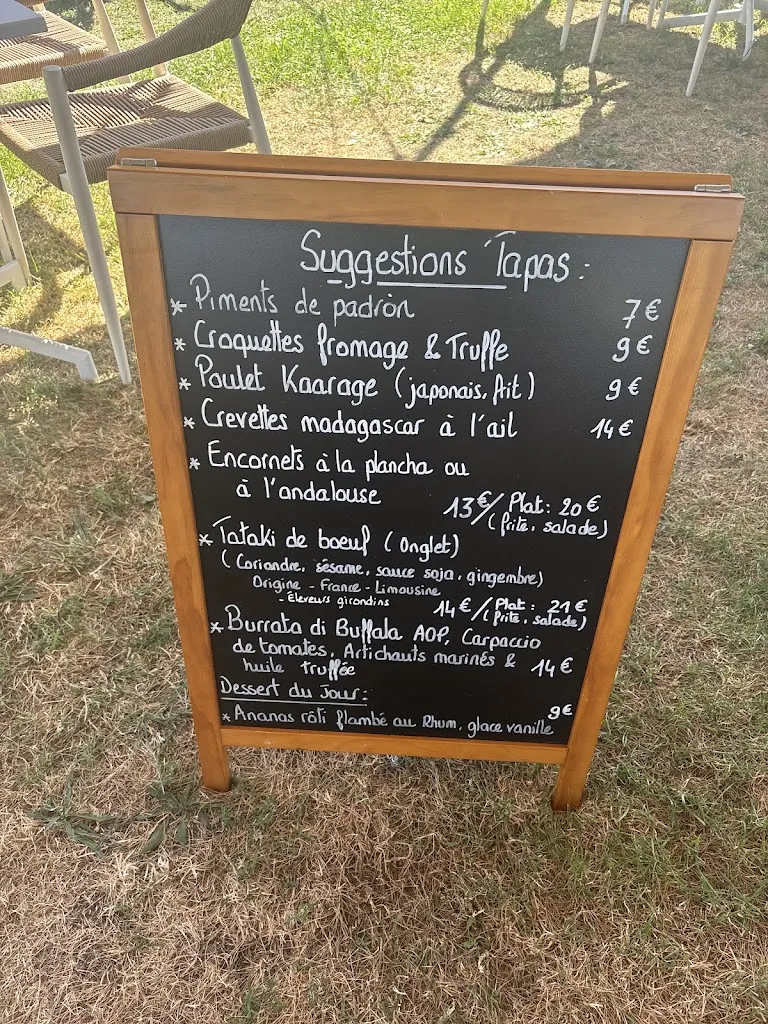 Suggestions Tapas :
* Piments de padròn 7€
* Croquettes fromage & Truffe 9€
* Poulet Kaarage (japonais, frit) 9€
* Crevettes madagascar à l'ail 14€
* Encornets à la plancha ou
à l'andalouse 13€/Plat: 20€
(frite, salade)
* Tataki de boeuf (Onglet)
(Coriandre, sésame, sauce soja, gingembre)
Origine - France - Limousine
- Éleveurs girondins 14€/Plat: 21€
(frite, salade)
* Burrata di Buffala AOP, Carpaccio
de tomates, Artichauts marinés & 14€
huile truffée
Dessert du Jour:
9€
* Ananas rôti flambé au Rhum, glace vanille